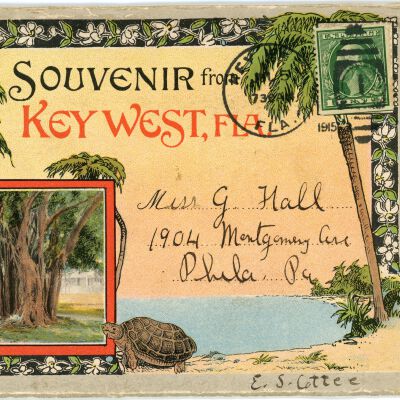 SOUVENIR from
KEY WEST, FLA.
FLA.
1915
Miss G Hall
1904 Montgomery Ave
Phila Pa